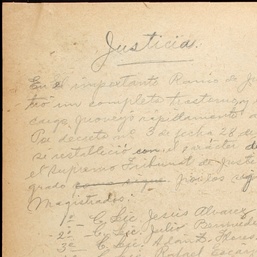 Justicia.
En el importante Ramo de Ju
tió un completo trastorno, y
cargo, proveyó rápidamente a
Por decreto nº 3 de fecha 28 de
se restableció con el carácter de
el Supremo Tribunal de Justi
grado como sigue. fueles
Magistrados:
1º - C. Lic. Jesús Alvarez
2º - C. Lic. Julio Bermúdez
3º - C. Lic. Flores
C. Lic. Rafael